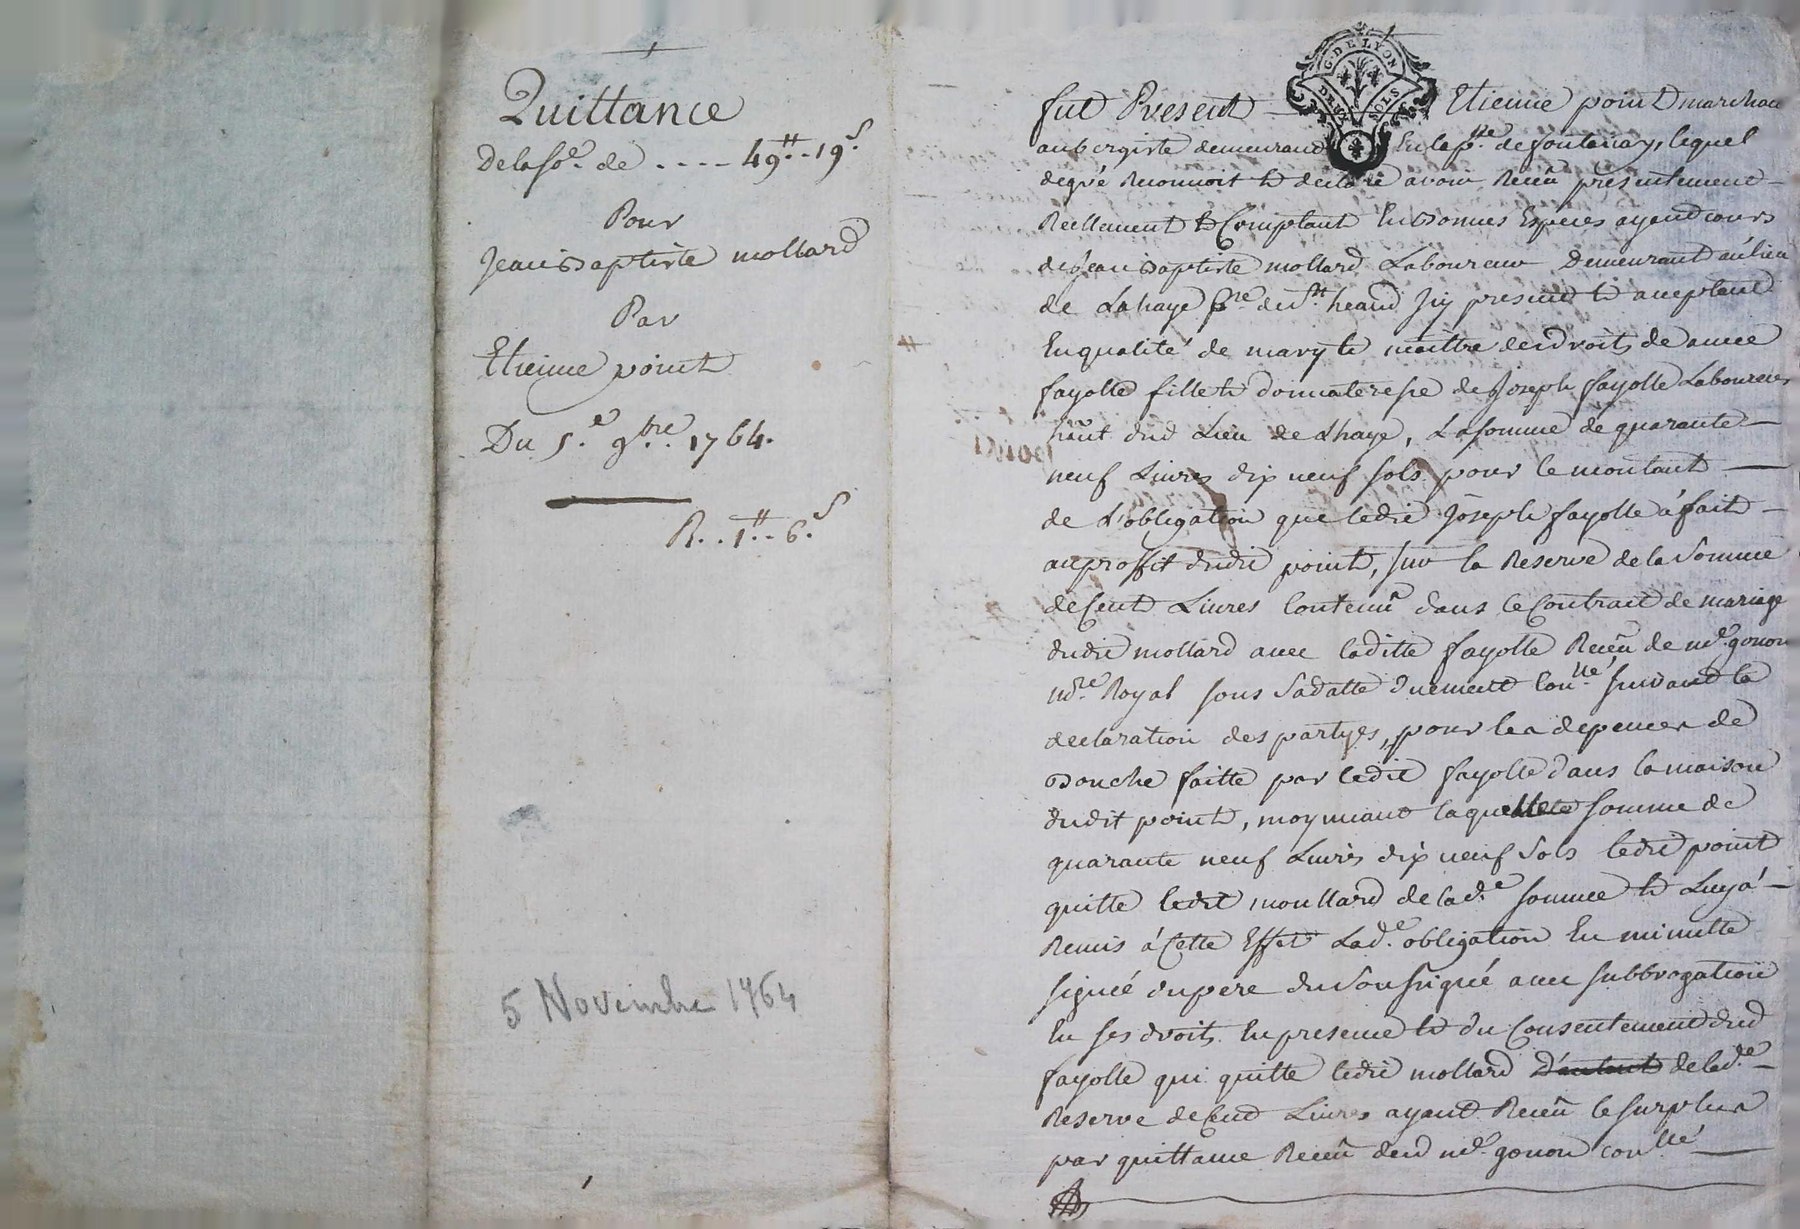 Quittance
De la so.e de .... 49.tt..19.s
Pour
Jean Baptiste mollard
Par
Etienne point
Du 5.e 9.bre. 1764.
R..1.tt..6.s
5 Novembre 1764
G. DE LYON
DEUX SOLS
fut Present Etienne point marchan
aubergiste demeurant En la p.sse de fontanay, lequel
de gré Reconnoit et declare avoir Receu presentement
Reellement et Comptant En Bonnes Especes ayant cours
de Jean Baptiste mollard Laboureur Demeurant au lieu
de Lahaye p.re de S.t heand Jcy present et acceptant
En qualité de mary et maître des droits de
fayolle fille et donnateresse de Joseph fayolle Laboureur
dud Lieu de Lhaye, La somme de quarante
neuf Livres dix neuf sols pour le montant
de L'obligation que ledit Joseph fayolle á fait
au proffit dudit point, sur la Reserve de la Somme
de Cent Livres Contenu dans le Contrait de mariage
dudit mollard avec laditte fayolle Receu de m.e gonon
no.re Royal sous Sa datte duement con.llé suivant la
declaration des partyes, pour les depences de
Bouche faitte par ledit fayolle dans la maison
dudit point, moyniant laquelle somme de
quarante neuf Livres dix neuf Sols ledit point
quitte ledit moullard de la d.e somme et Luy á
Remis á Cette Effet Lad.e obligation En minutte
signée du pere du Soussigné avec subbrogation
En ses droits. En presence et du Consentement dud
fayolle qui quitte ledit mollard d'autant de lad.e
Reserve de Cent Livres ayant Receu le surplus
par quittance Receu dud m.e gonon con.llé